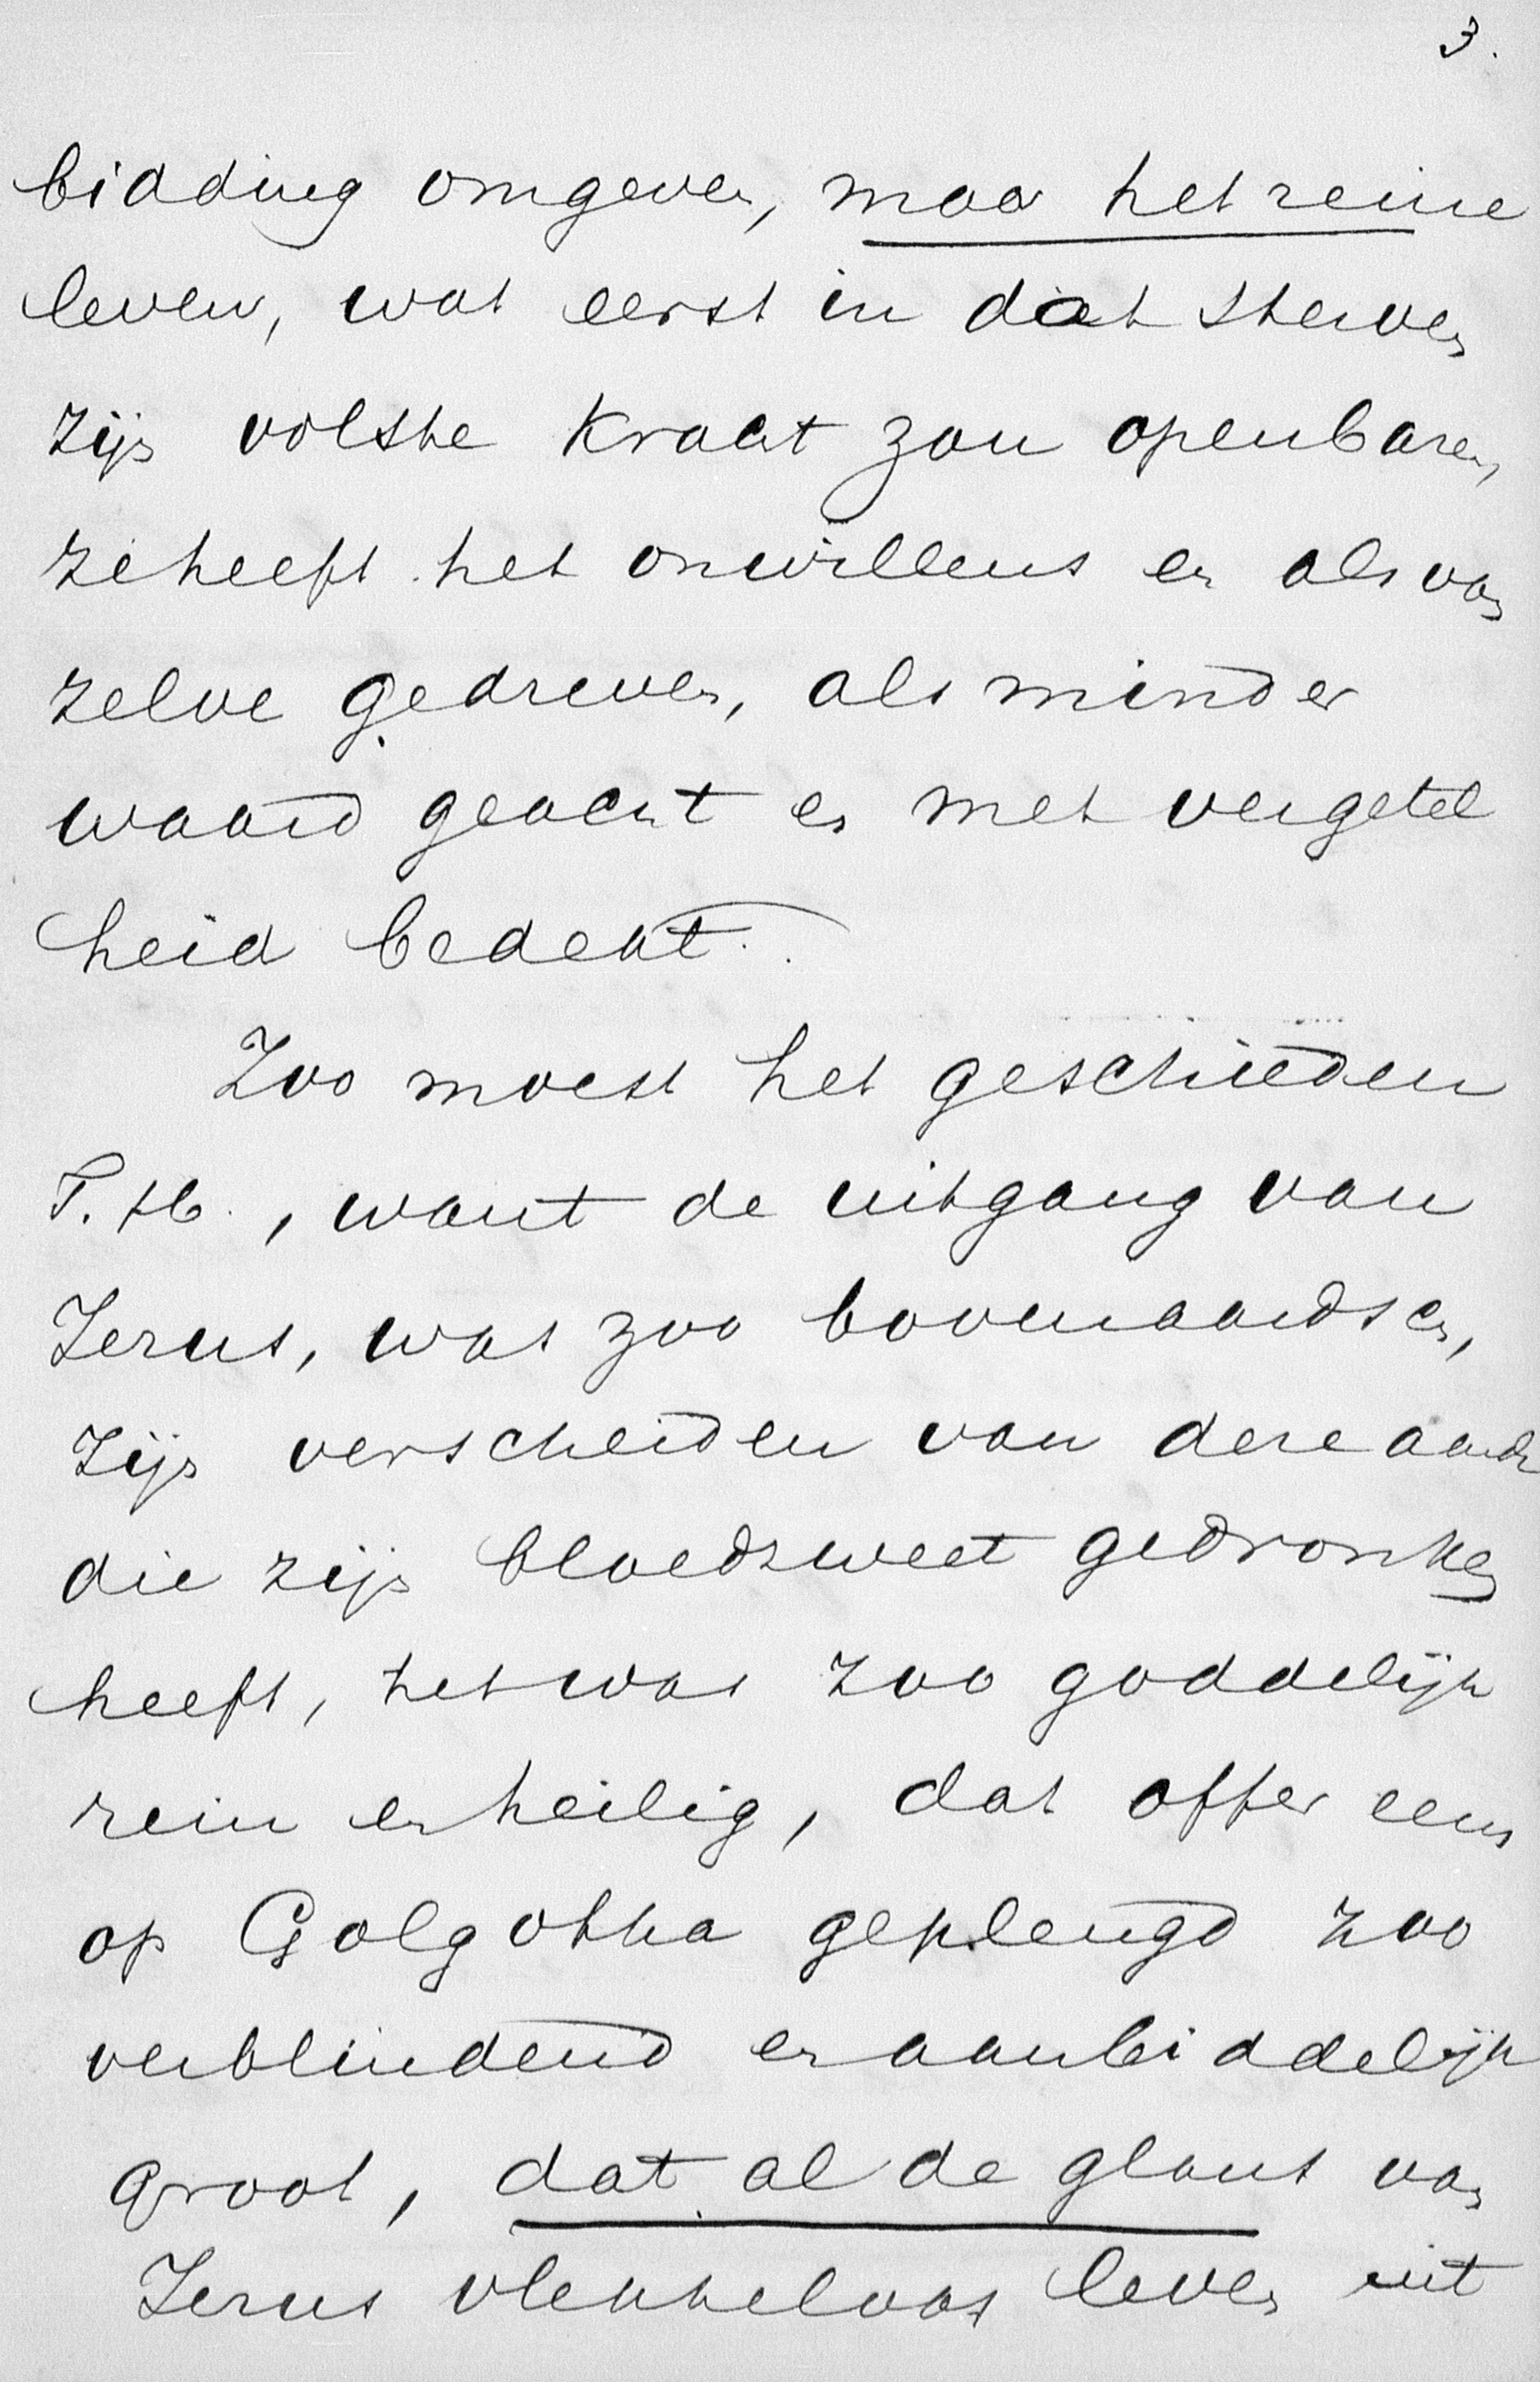 3.
bidding omgeven, maar het reine
leven, wat eerst in dat sterven
zijn volste kracht zou openbaren,
ze heeft het onwillens en als van
zelve gedreven, als minder
waard geacht en met vergetel
heid bedekt.
Zoo moest het geschieden
T. H., want de uitgang van
Jezus, was zoo bovenaardsch,
zijn verscheiden van deze aarde
die zijn bloedzweet gedronken
heeft, het was zoo goddelijk
rein en heilig, dat offer eens
op Golgotha geplengd zoo
verblindend en aanbiddelijk
groot, dat al de glans van
Jezus vlekkeloos leven uit